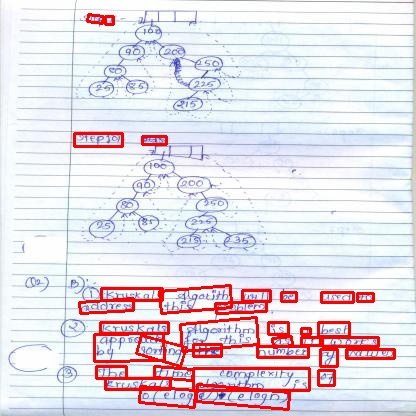 100
90 200
80 250
25 85 225
215
Step 10
100
90 200
80 250
25 85 225
215 235
Q2) B)
① Kruskals algorithm will be used to
address this problem
② Kruskals algorithm is best
approach for this as it works
by sorting the number of
③ The time complexity of
Kruskals algorithm is